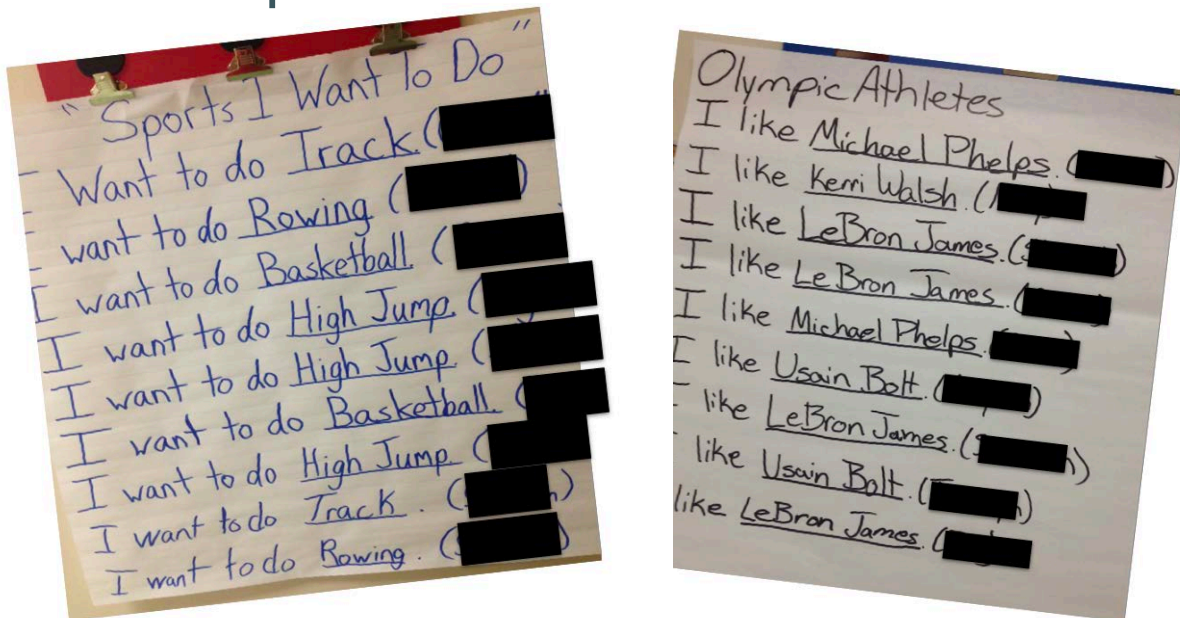 "Sports I Want To Do"
I Want to do Track. (
I want to do Rowing (
I want to do Basketball. (
I want to do High Jump. (
I want to do High Jump. (
I want to do Basketball. (
I want to do High Jump. (
I want to do Track. ( )
I want to do Rowing. ( )
Olympic Athletes
I like Michael Phelps. ( )
I like Kerri Walsh. (
I like LeBron James. ( )
I like LeBron James. (
I like Michael Phelps.
I like Usain Bolt. ( )
I like LeBron James. ( )
I like Usain Bolt. ( )
like LeBron James. (